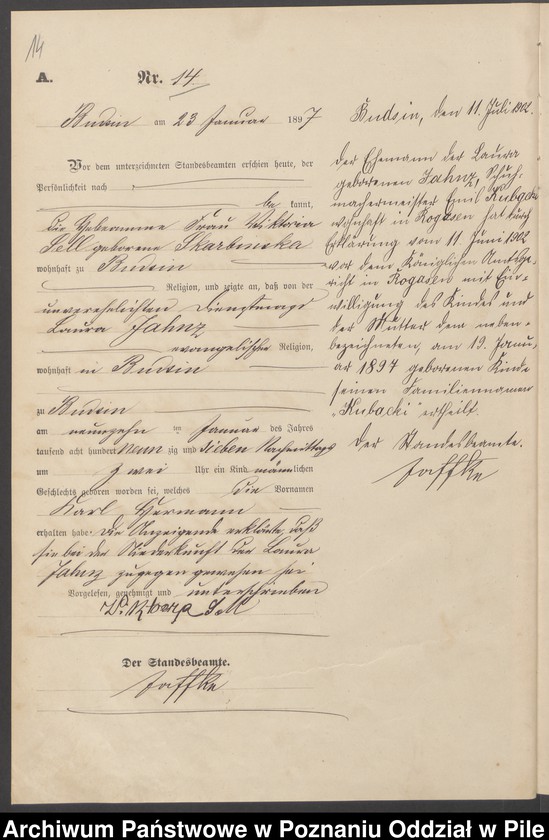 14
A.
Nr. 14.
Budsin am 23 Januar 1897
Vor dem unterzeichneten Standesbeamten erschien heute, der
Persönlichkeit nach
be kannt,
die Hebeamme Frau Wiktoria
Sell geborene Skarbinska
wohnhaft zu Budsin
Religion, und zeigte an, daß von der
unverehelichten Dienstmagd
Laura Jahnz
evangelischer Religion,
wohnhaft in Budsin
zu Budsin
am neunzehn ten Januar des Jahres
tausend acht hundert neun zig und sieben Nachmittags
um zwei Uhr ein Kind männlichen
Geschlechts geboren worden sei, welches die Vornamen
Karl Hermann
erhalten habe. Die Anzeigende erklärte, daß
sie bei der Niederkunft der Laura
Jahnz zugegen gewesen sei
Vorgelesen, genehmigt und unterschrieben
Sell
Der Standesbeamte.
Jaffke
Budsin, den 11. Juli 1902.
Der Ehemann der Laura
geborenen Jahnz, Schuh-
machermeister Emil Kubacki
wohnhaft in Rogasen hat durch
Erklärung vom 11. Juni 1902
vor dem Königlichen Amtsge-
richt in Rogasen mit Ein-
willigung des Kindes und
der Mutter dem neben-
bezeichneten, am 19. Janu-
ar 1897 geborenen Kinde
seinen Familiennamen
"Kubacki" ertheilt.
Der Standesbeamte.
Jaffke
Archiwum Państwowe w Poznaniu Oddział w Pile